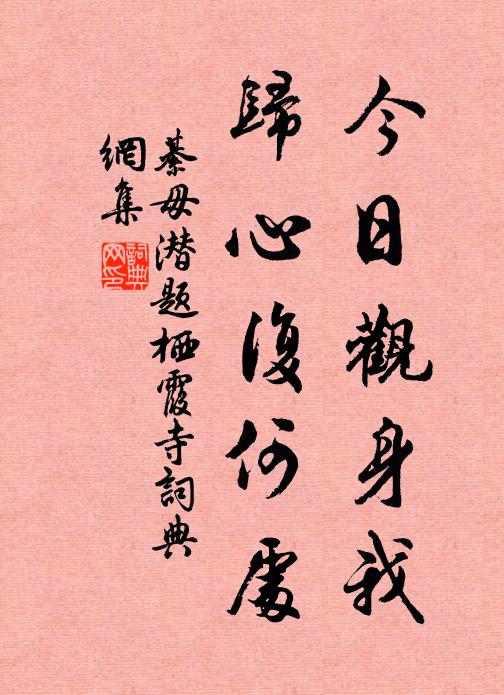 今日觀身我
歸心復何處
綦毋潜题栖霞寺詞典
網集
詞典
网印